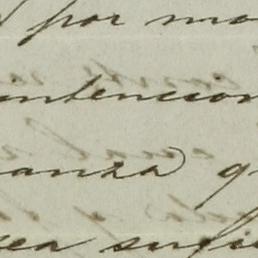 por mo
ntencion
anza q
ea sufi